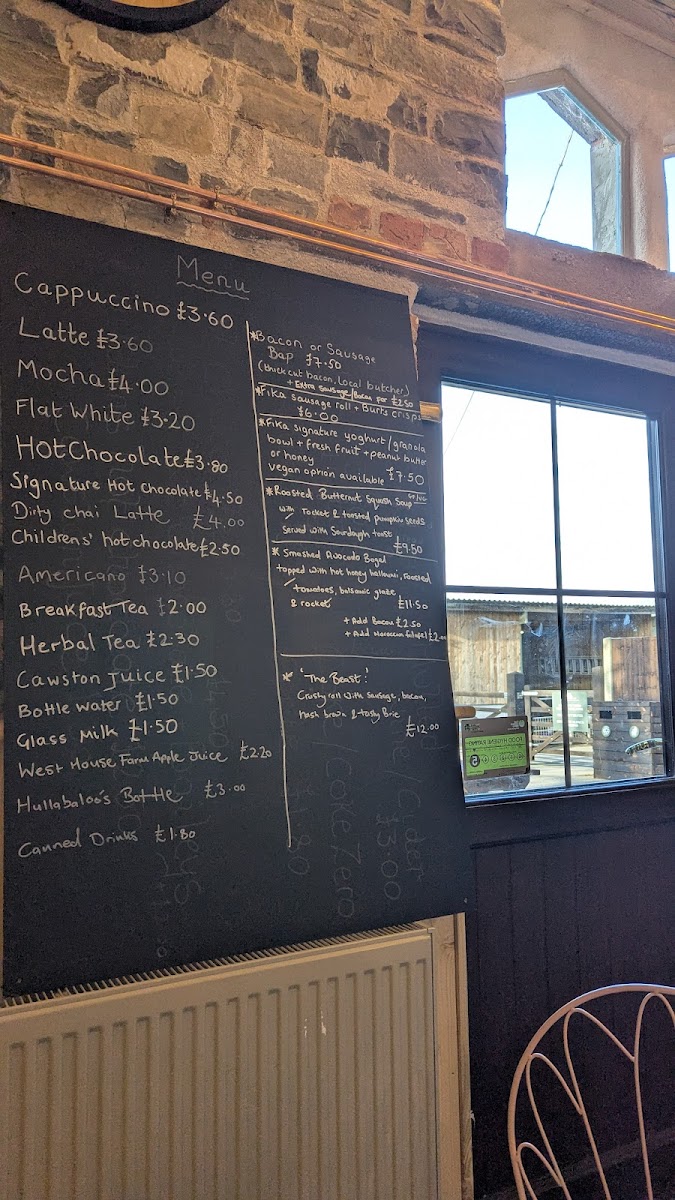 Menu
Cappuccino £3.60
Latte £3.60
Mocha £4.00
Flat White £3.20
Hot Chocolate £3.80
Signature Hot Chocolate £4.50
Dirty chai Latte £4.00
Childrens' hot chocolate £2.50
Americano £3.10
Breakfast Tea £2.00
Herbal Tea £2.30
Cawston Juice £1.50
Bottle water £1.50
Glass Milk £1.50
West House Farm Apple Juice £2.20
Hullabaloo's Bottle £3.00
Canned Drinks £1.80
*Bacon or Sausage
Bap £7.50
(thick cut bacon, local butcher)
+ Extra Sausage/Bacon for £2.50
*Fika sausage roll + Burts crisps
£6.00
*Fika signature yoghurt/granola
bowl + fresh fruit + peanut butter
or honey
vegan option available £7.50
*Roasted Butternut Squash Soup
with rocket & toasted pumpkin seeds
served with Sourdough toast
£9.50
* Smashed Avocado Bagel
topped with hot honey halloumi, roasted
tomatoes, balsamic glaze
& rocket £11.50
+ Add Bacon £2.50
+ Add Moroccan falafel £2
* 'The Beast'
Crusty roll with Sausage, bacon,
hash brown & tasty Brie
£12.00
/Cider
£3.00
/Coke Zero
FOOD HYGIENE RATING
5